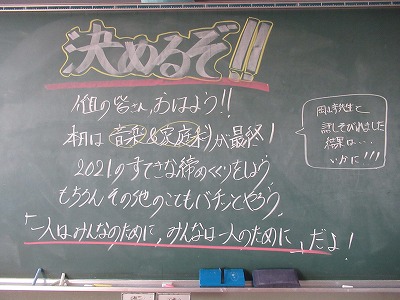 決めるぞ!!
1組の皆さん、おはよう!!
本日は音楽&家庭科が最終!
2021のすてきな締めくくりをしよう
もちろんその他のこともバチッとやろう。
「一人はみんなのために、みんなは一人のために」だよ!
先生と
話しそびれました
結果は…
いかに!!!